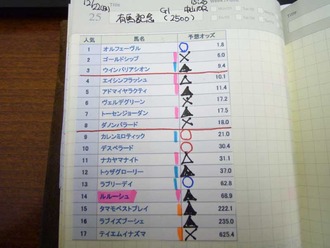 12/22(日) GI 15:25
25 有馬記念 (2500) 中山10R
人気 馬名 予想オッズ
1 オルフェーヴル 1.8
2 ゴールドシップ 6.0
3 ウインバリアシオン 9.4
4 エイシンフラッシュ 10.1
5 アドマイヤラクティ 11.4
6 ヴェルデグリーン 17.2
7 トーセンジョーダン 17.5
8 ダノンバラード 18.0
9 カレンミロティック 21.0
10 デスペラード 30.4
11 ナカヤマナイト 31.1
12 トゥザグローリー 37.0
13 ラブリーデイ 62.8
14 ルルーシュ 68.9
15 タマモベストプレイ 222.1
16 ラブイズブーシェ 235.0
17 テイエムイナズマ 625.4